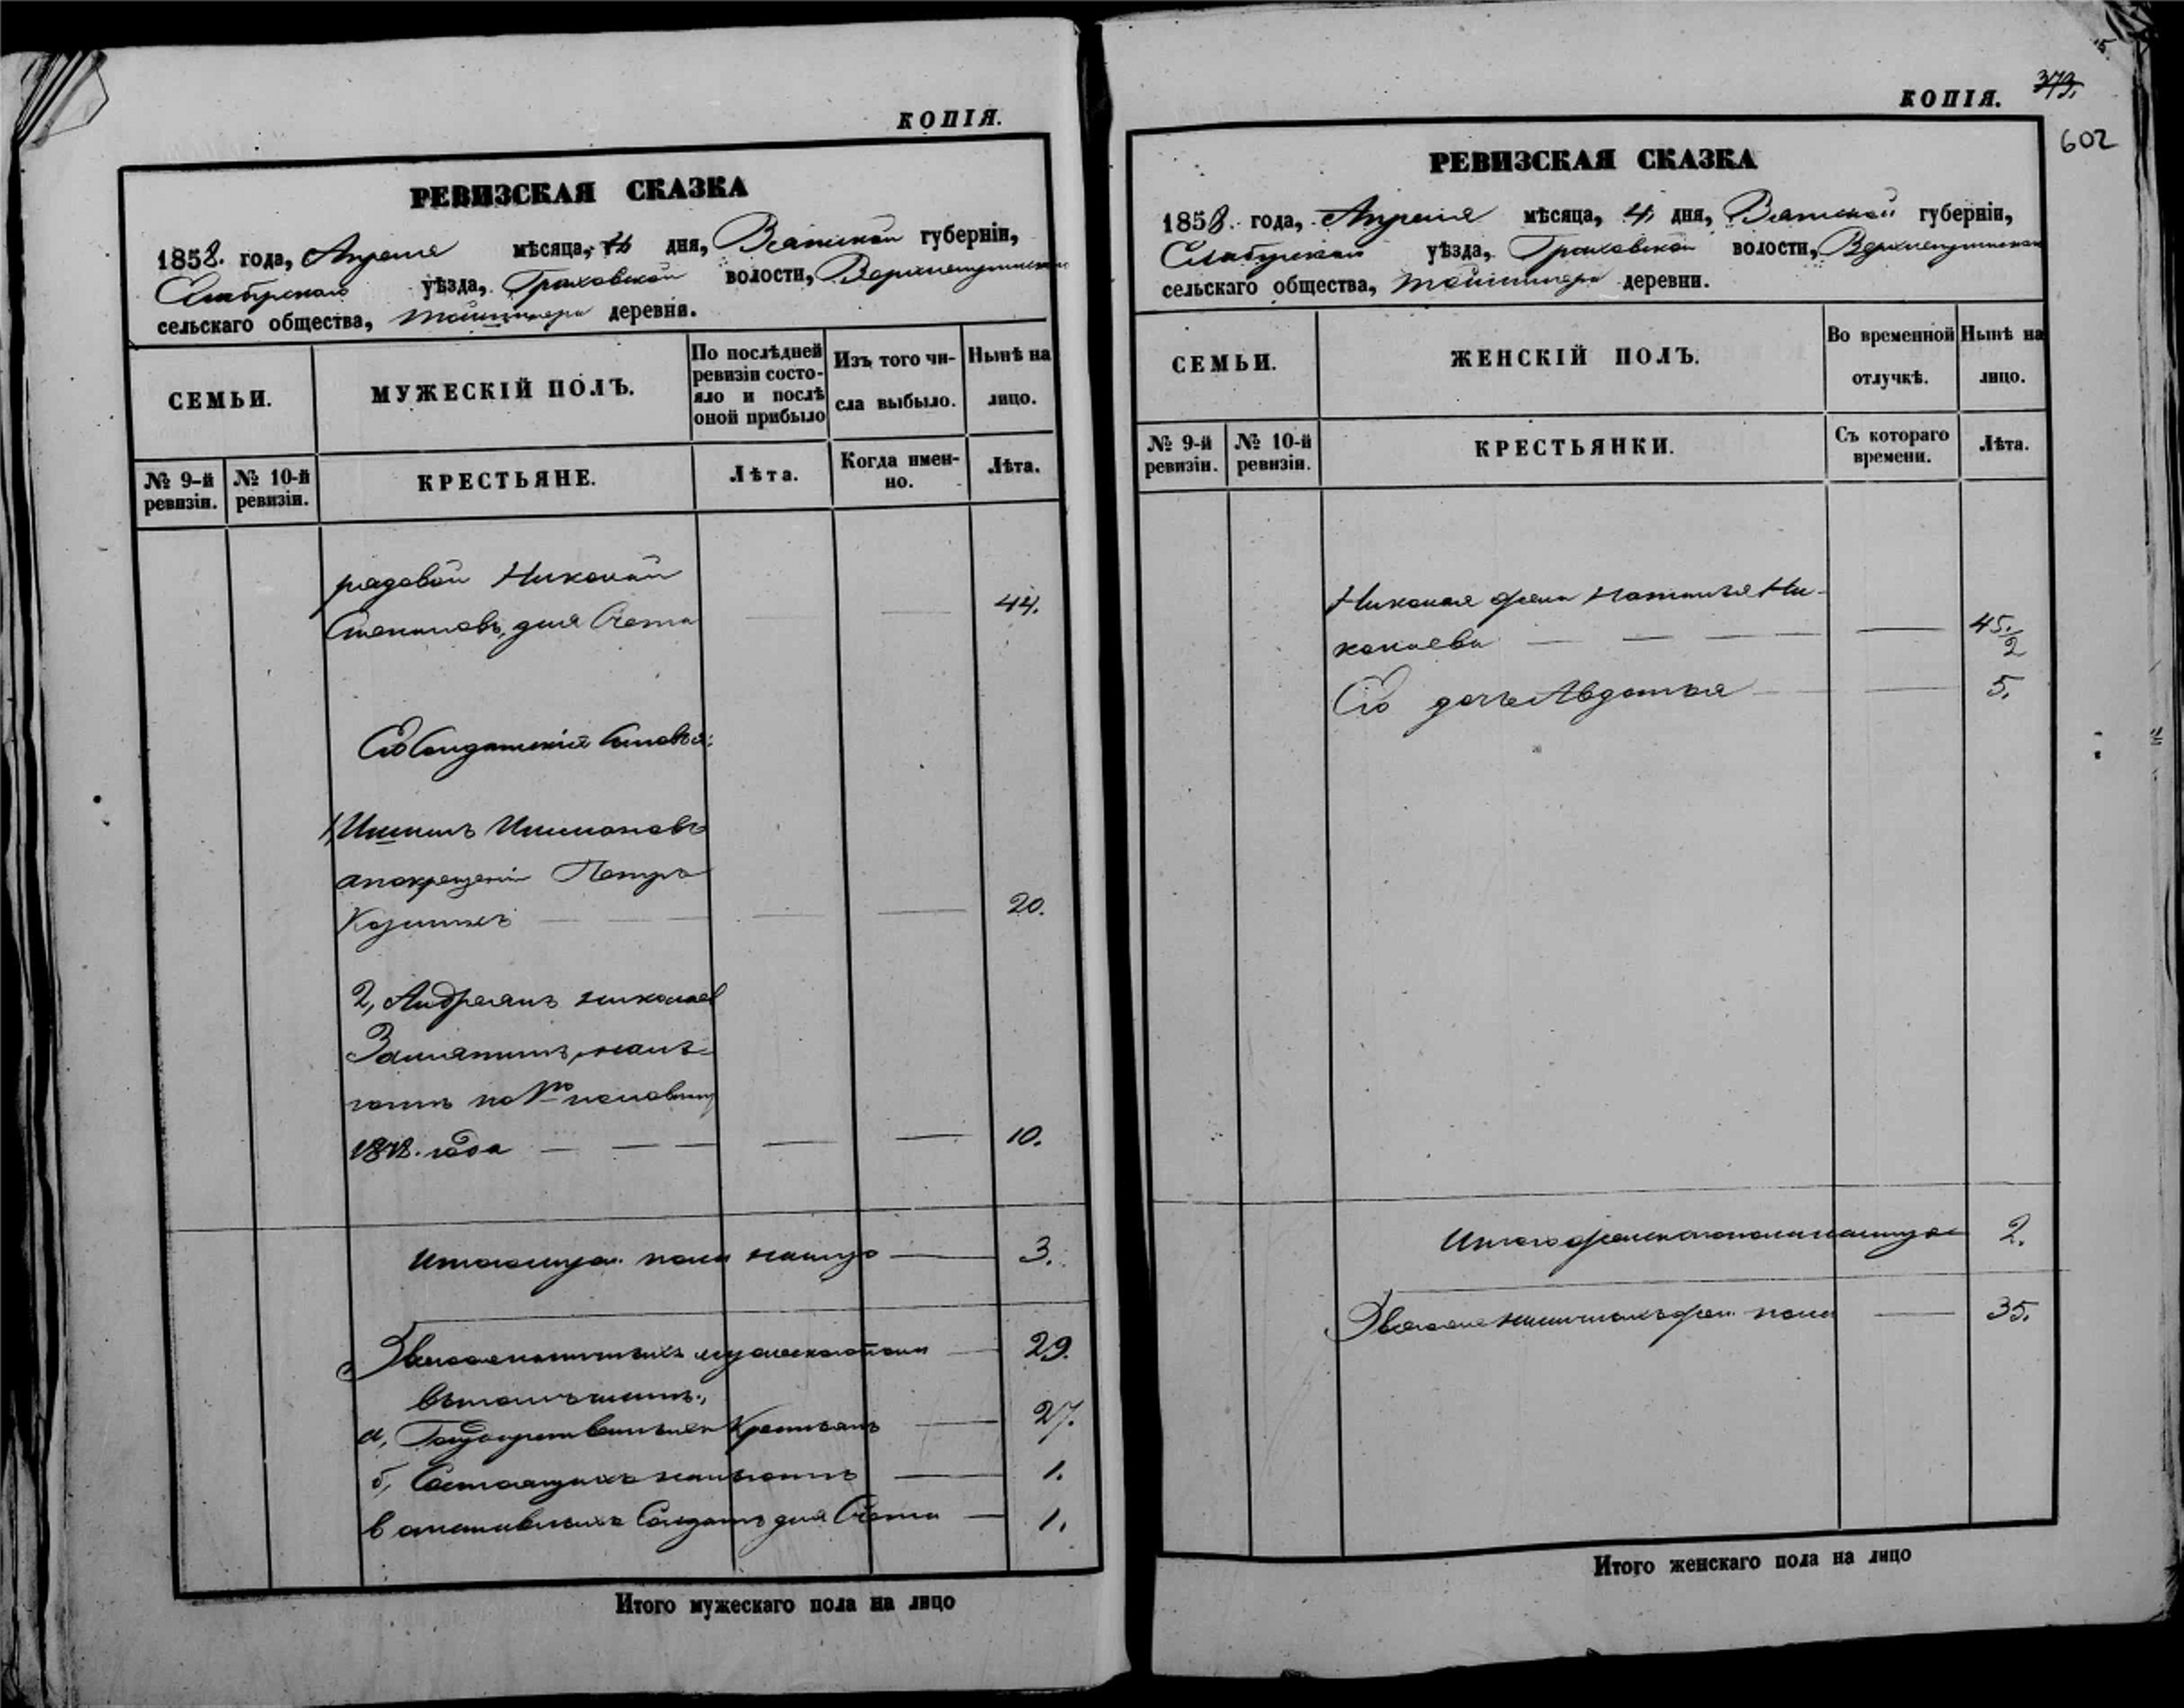 КОПІЯ.
РЕВИЗСКАЯ СКАЗКА
1858. года, Апреля мѣсяца, дня, Вятской губерніи,
Елабугскаго уѣзда, Граховской волости,
сельскаго общества, деревни.
СЕМЬИ.
МУЖЕСКІЙ ПОЛЪ.
По послѣдней ревизіи состо-
яло и послѣ оной прибыло
Изъ того чи-
сла выбыло.
Нынѣ на
лицо.
№ 9-й ревизіи.
№ 10-й ревизіи.
КРЕСТЬЯНЕ.
Лѣта.
Когда имен-
но.
Лѣта.
рядовой Николай
Степановъ, для Счета 44.
Его Солдатскіе Сыновья:
1,
Петръ
20.
2, Андреянъ Николаев
Замятинъ,
по 1ю половину
года 10.
Итого муж. пола налицо 3.
Всего наличныхъ мужескаго пола 29.
Въ томъ числѣ:
а, Государственныхъ Крестьянъ 27.
б, Состоящихъ 1.
в отставныхъ Солдатъ для Счета 1.
Итого мужескаго пола на лицо
КОПІЯ. 373.
602
РЕВИЗСКАЯ СКАЗКА
1858. года, Апреля мѣсяца, 4, дня, Вятской губерніи,
Елабугской уѣзда, Граховской волости,
сельскаго общества, деревни.
СЕМЬИ.
ЖЕНСКІЙ ПОЛЪ.
Во временной
отлучкѣ.
Нынѣ на
лицо.
№ 9-й ревизіи.
№ 10-й ревизіи.
КРЕСТЬЯНКИ.
Съ котораго
времени.
Лѣта.
Николая жена Наталья Ни-
колаева 45. 2
Его дочь Авдотья 5.
Итого женскаго пола налицо 2.
Всего наличныхъ жен. пола 35.
Итого женскаго пола на лицо